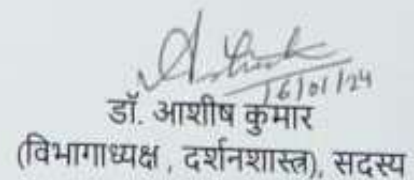 16/01/24
डॉ. आशीष कुमार
(विभागाध्यक्ष , दर्शनशास्त्र), सदस्य